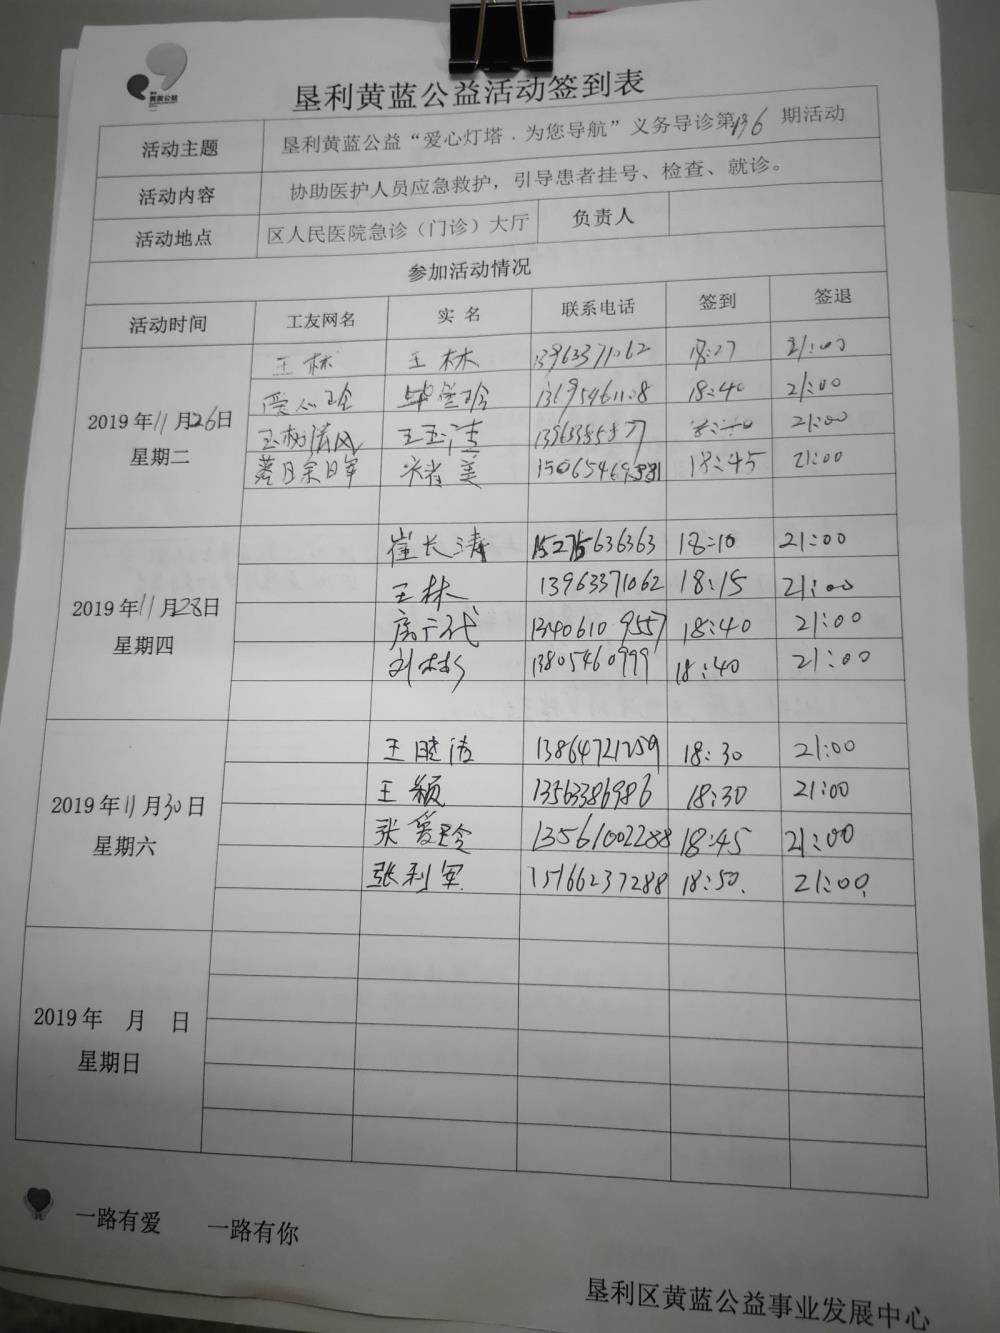 黄蓝公益
垦利黄蓝公益活动签到表
活动主题 垦利黄蓝公益“爱心灯塔．为您导航”义务导诊第196期活动
活动内容 协助医护人员应急救护，引导患者挂号、检查、就诊。
活动地点 区人民医院急诊（门诊）大厅 负责人
参加活动情况
活动时间 工友网名 实名 联系电话 签到 签退
2019年11月26日
星期二
王林 王林 13963371062 18:27 21:00
爱心玲 13695461108 18:40 21:00
玉树清风 王玉清 21:00
美 18:45 21:00
2019年11月28日
星期四
崔长涛 15275636363 18:10 21:00
王林 13963371062 18:15 21:00
13406109557 18:40 21:00
刘彬彬 13805460999 18:40 21:00
2019年11月30日
星期六
王睦洁 13864721259 18:30 21:00
王颖 13563386986 18:30 21:00
张爱玲 13561002288 18:45 21:00
张利军 15166237288 18:50. 21:00.
2019年 月 日
星期日
一路有爱 一路有你
垦利区黄蓝公益事业发展中心